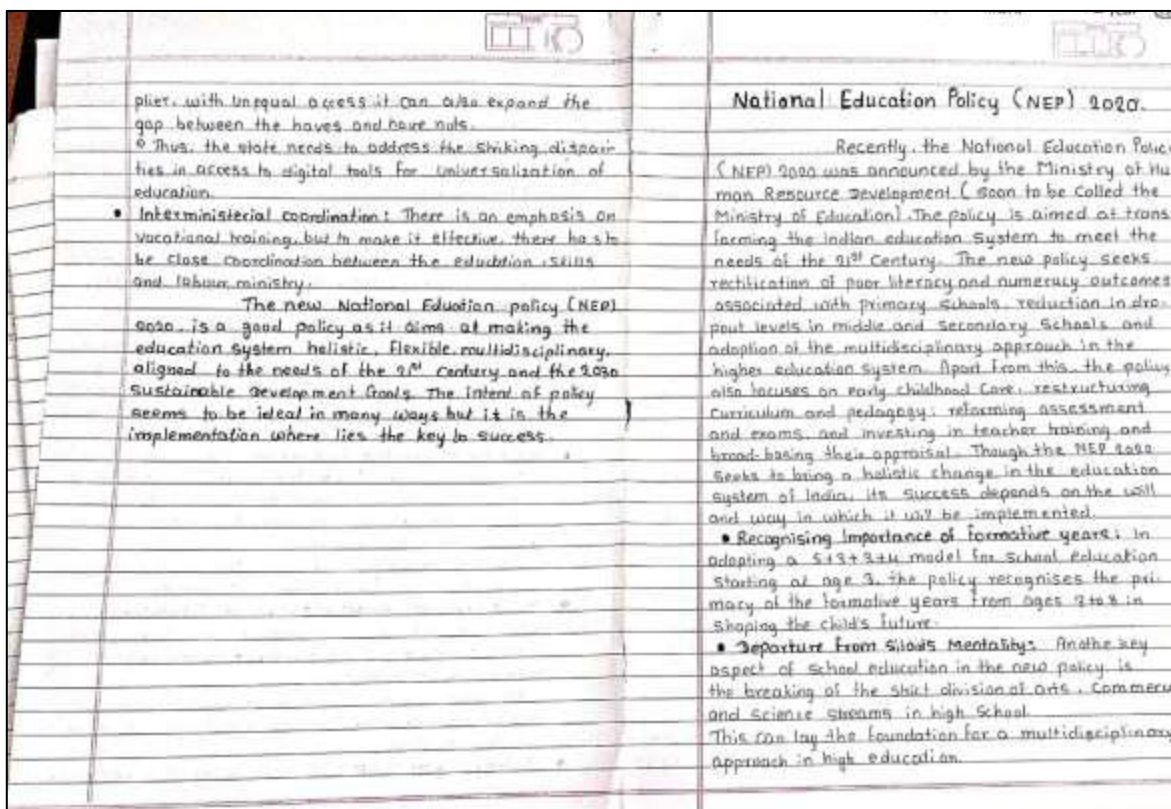 plier, with unequal access it can also expand the
gap between the haves and have nuts.
Thus, the state needs to address the striking dispari
ties in access to digital tools for universalization of
education.
• Interministerial coordination: There is an emphasis on
vocational training, but to make it effective, there has to
be close coordination between the education, skills
and labour ministry.
The new National Eduation policy (NEP)
2020, is a good policy as it aims at making the
education system holistic, flexible, multidisciplinary,
aligned to the needs of the 21st Century and the 2030
sustainable Development Goals. The intent of policy
seems to be ideal in many ways but it is the
implementation where lies the key to success.
National Education Policy (NEP) 2020.
Recently, the National Education Polic
(NEP) 2020 was announced by the Ministry of Hu
man Resource Development ( soon to be Called the
Ministry of Education). The policy is aimed at trans
forming the Indian education system to meet the
needs of the 21st Century. The new policy seeks
rectification of poor literacy and numeracy outcomes
associated with primary schools, reduction in dro
pout levels in middle and secondary schools and
adoption of the multidisciplinary approach in the
higher education system. Apart from this, the policy
also focuses on early childhood care, restructuring
curriculum and pedagogy; reforming assessment
and exams, and investing in teacher training and
broad-basing their appraisal. Though the NEP 2020
seeks to bring a holistic change in the education
system of India, its success depends on the will
and way in which it will be implemented.
• Recognising Importance of formative years: In
adopting a 5+3+3+4 model for school education
starting at age 3, the policy recognises the pri
macy of the formative years from ages 3 to 8 in
shaping the child's future.
• Departure from Silows Mentality: Anothe key
aspect of school education in the new policy is
the breaking of the strict division of arts, Commerc
and science streams in high school.
This can lay the foundation for a multidisciplinary
approach in high education.